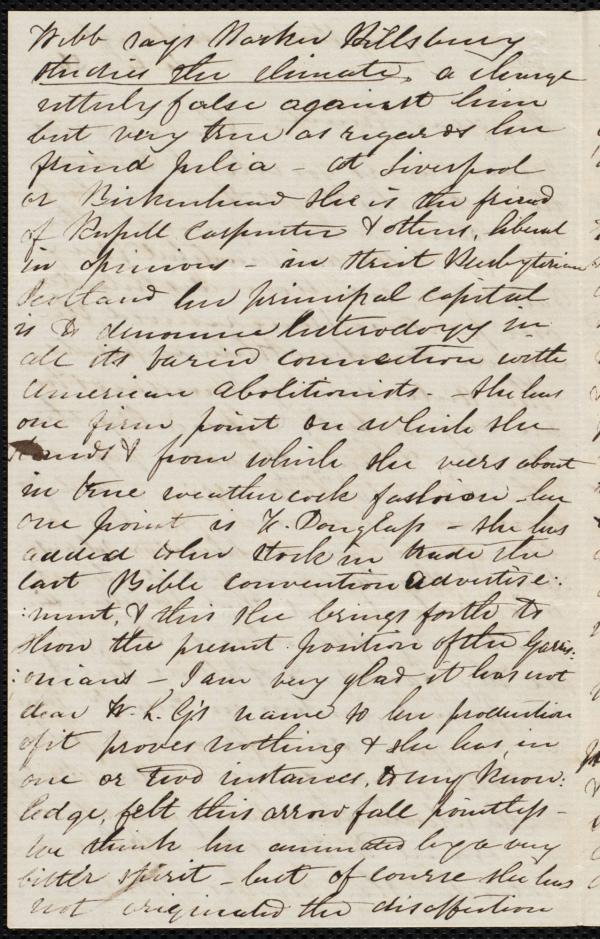 Webb says Parker Pillsbury
studies the climate, a charge
utterly false against him
but very true as regards her
friend Julia - at Liverpool
or Birkenhead she is the friend
of Russell Carpenter & others, liberal
in opinions - in strict Presbyterian
Scotland her principal capital
is to denounce heterodoxy in
all its varied connection with
American abolitionists. - She has
one firm point on which she
stands & from which she veers about
in true weathercock fashion - her
one point is F. Douglass - she has
added to her stock in trade the
last Bible convention advertise:
:ment, & this she brings forth to
show the present position of the Garris:
:onians - I am very glad it has not
dear W. L. G's name so her production
of it proves nothing & she has, in
one or two instances, to my know:
ledge, felt this arrow fall pointless -
we think her animated by a very
bitter spirit - but of course she has
not originated the disaffection